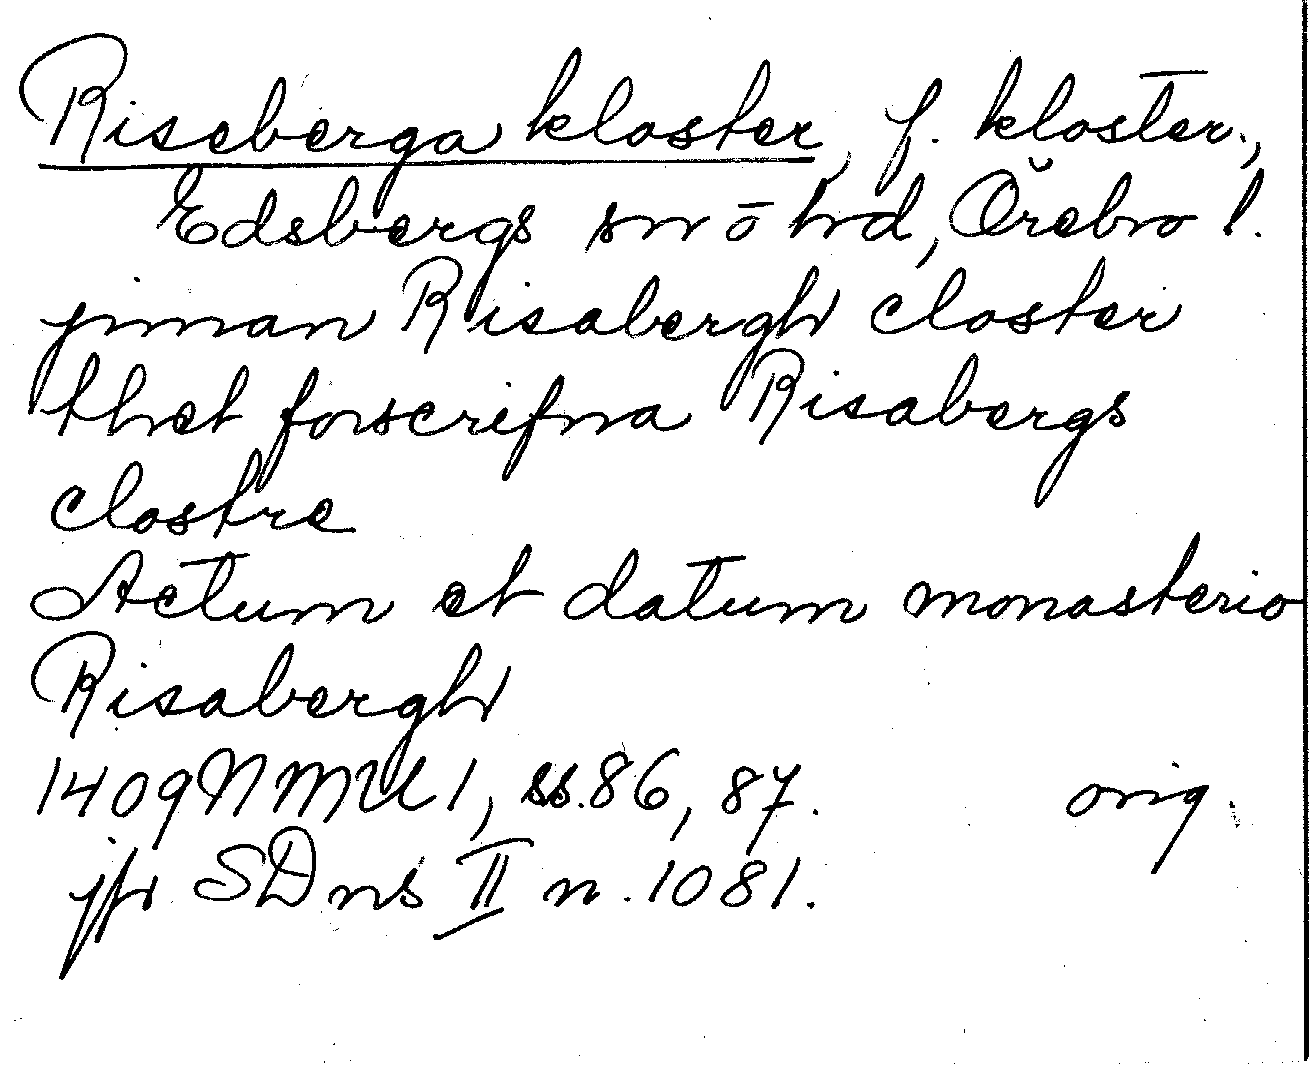 Riseberga kloster, f. kloster.,
Edsbergs sn o hd, Örebro l.
jnnan Risabergh closter
thet forscrifna Risabergs
clostre
Actum et datum monasterio
Risabergh
1409 NMU 1, ss. 86, 87. orig.
jfr SDns II n. 1081.